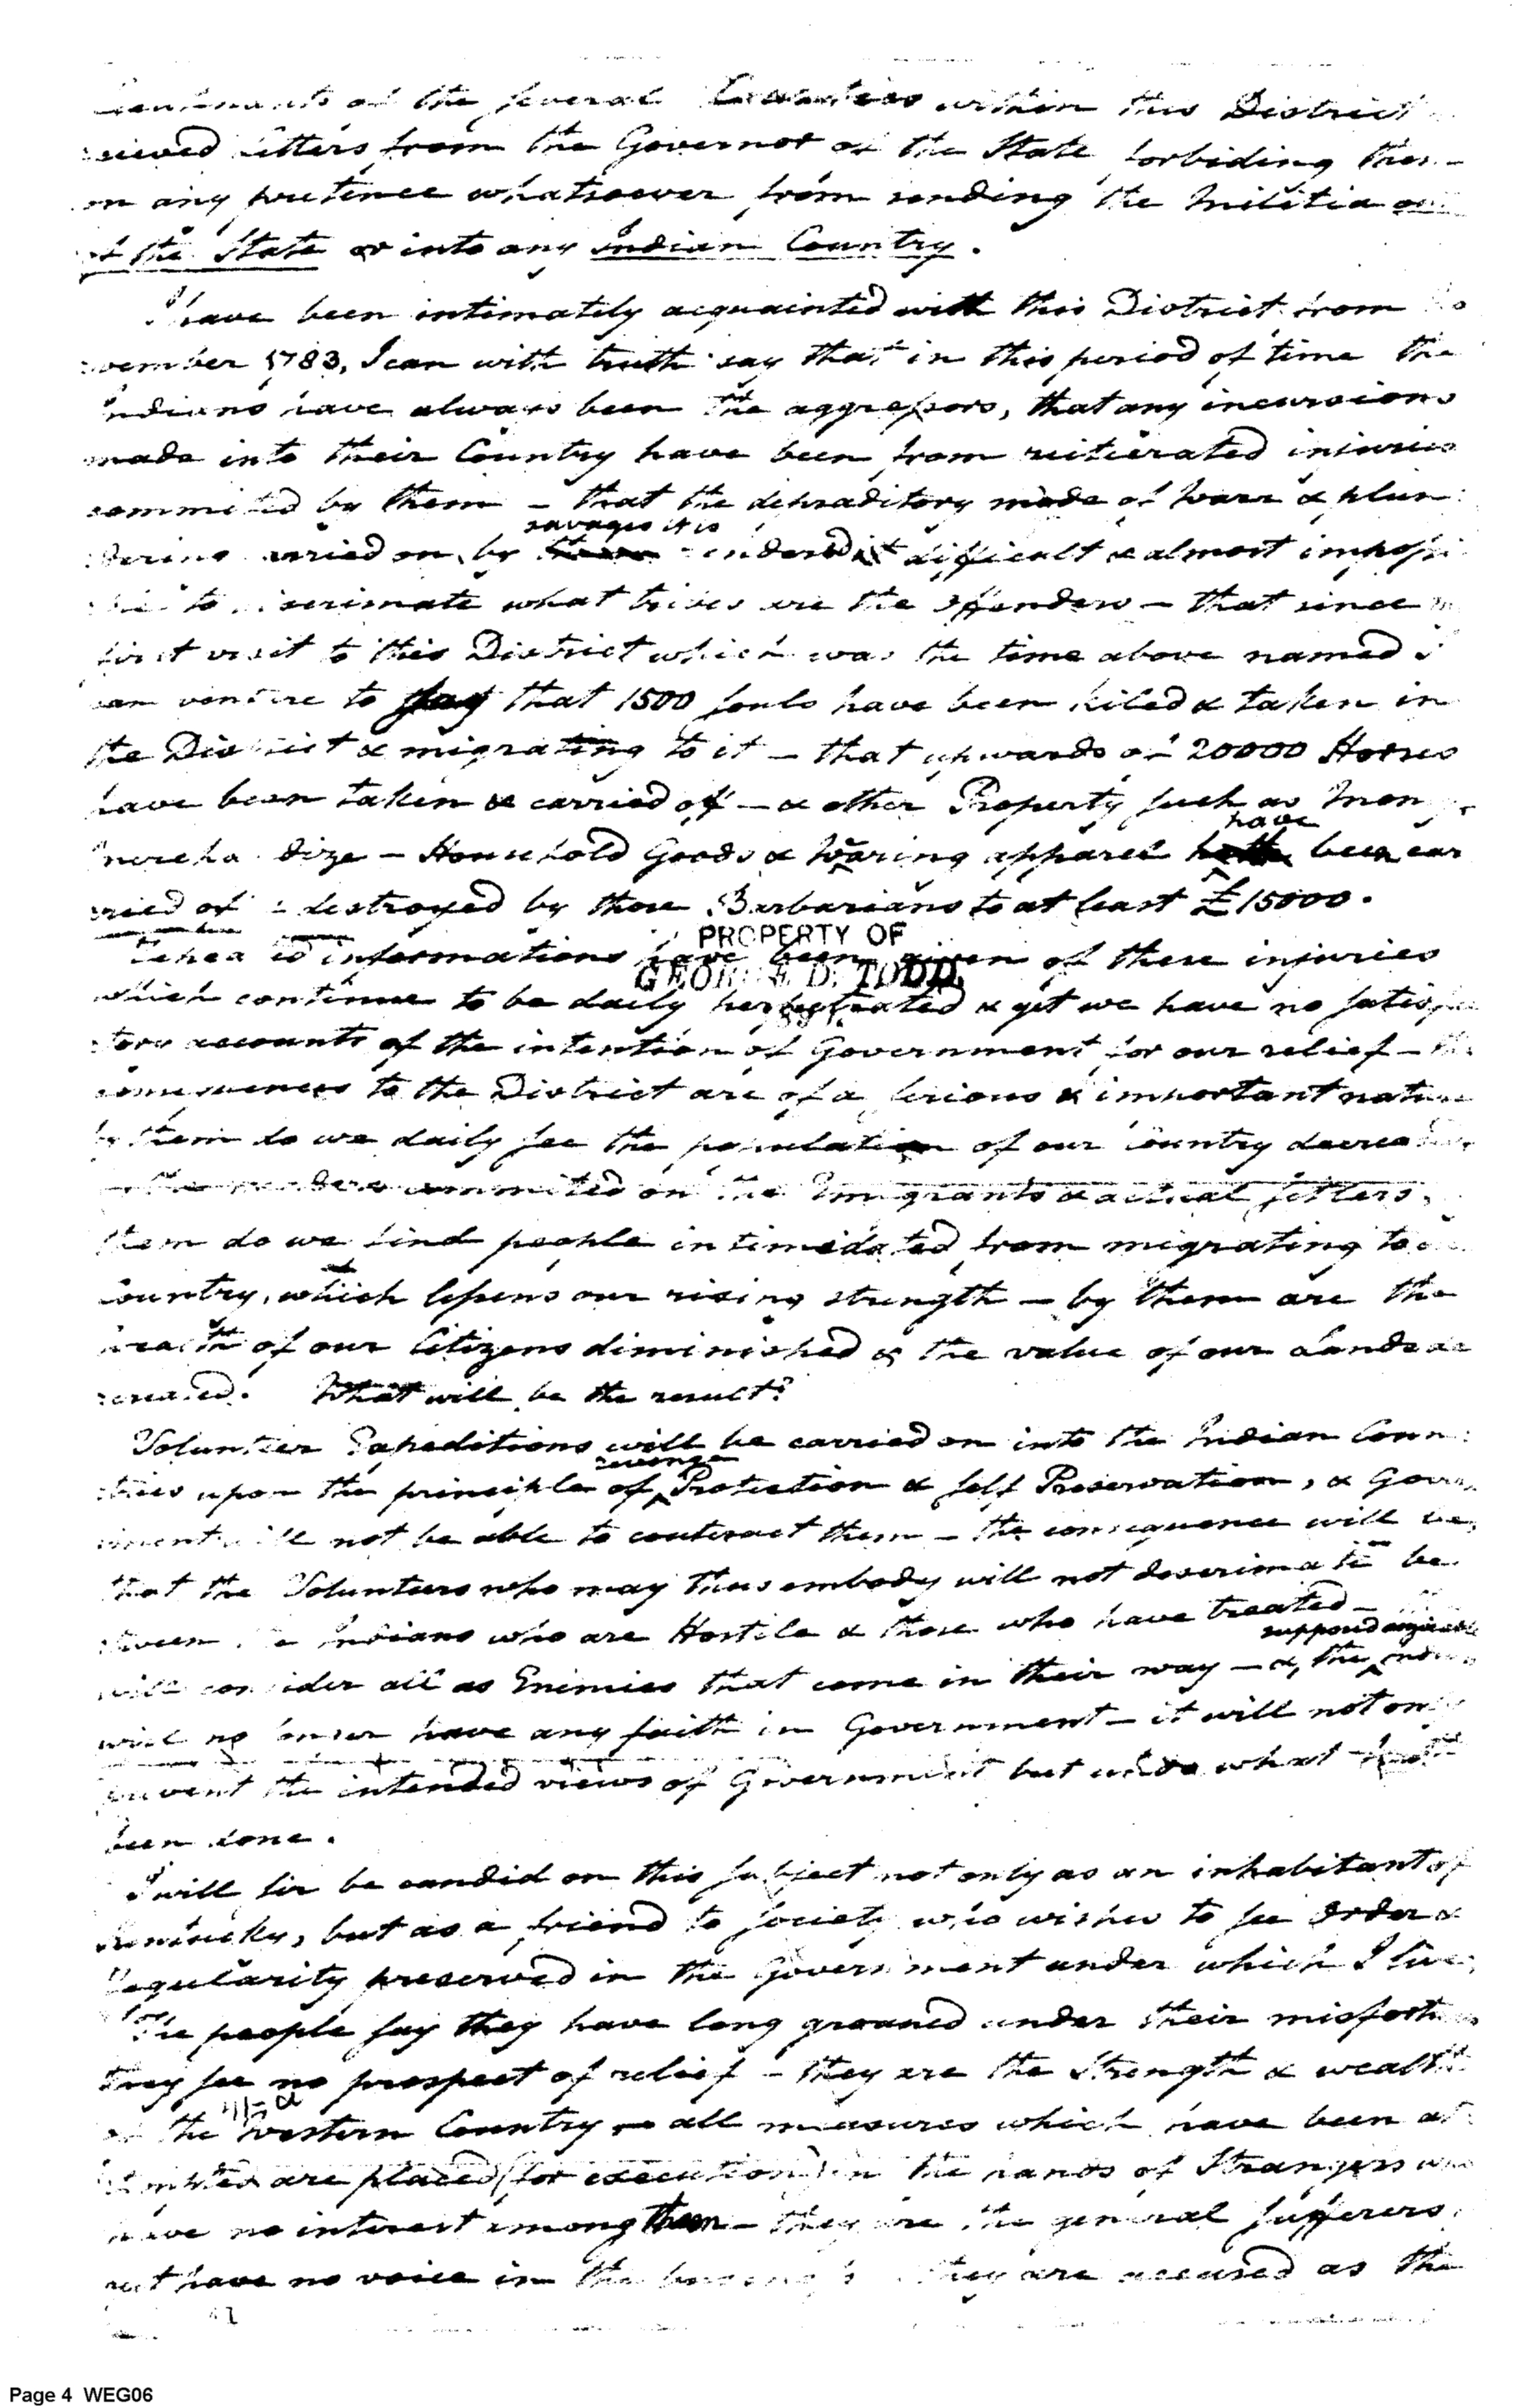 of the several Counties within this District
Letters from the Governor of the State forbiding
on any pretence whatsoever from sending the Militia
of the State or into any Indian Country.
I have been intimately acquainted with this District from No
vember 1783, I can with truth say that in this period of time the
Indians have always been the aggressors, that any incursions
made into their Country have been from reitierated injuries
commited by them – that the depraditory mode of Warr & plun
savages it is
dering carried on by rendered it difficult & almost impossi
to discrimate what tribes are the offenders – that since my
first visit to this District which was the time above named I
can venture to say that 1500 souls have been killed & taken in
the District & migrating to it – that upwards of 20000 Horses
have been taken & carried off – & other Property such as
have
merchandize – Household Goods & Waring apparel hath been car
ried of & destroyed by those Barbarians to at least £15000.
PROPERTY OF
informations have been given of these injuries
GEORGE D. TODD,
which continue to be daily perpetrated & yet we have no satisfac
tory accounts of the intention of Government for our relief – the
consequences to the District are of a serious & important nature
by them do we daily see the population of our Country
commited on the Emigrants & actual setlers,
them do we find people intimidated from migrating to
Country, which lessens our rising strength – by them are the
wealth of our Citizens diminished & the value of our Lands de
creased. What will be the result?
Volunteer Expeditions will be carried on into the Indian Coun
revenge
tries upon the principle of Protection & self Preservation, & Govern
ment will not be able to conteract them – the consequence will be,
that the Volunteers who may thus embody will not desciminate be
tween the Indians who are Hostile & those who have treated –
supposed
will consider all as Enimies that come in their way – & the
will no longer have any faith in Government – it will not only
prevent the intended views of Government but undo what hath
been done.
I will sir be candid on this subject not only as an inhabitant of
Kentucky, but as a friend to Society who wishes to see Order &
Regularity preserved in the Government under which I live,
The people say they have long groaned under their misfortunes
they see no prospect of relief – they are the Strength & wealth
of the Western Country – all measures which have been at
tempted are placed (for execution) in the hands of Strangers who
have no interest among them – they are the general sufferers
yet have no voice in the they are accused as the
Page 4 WEG06